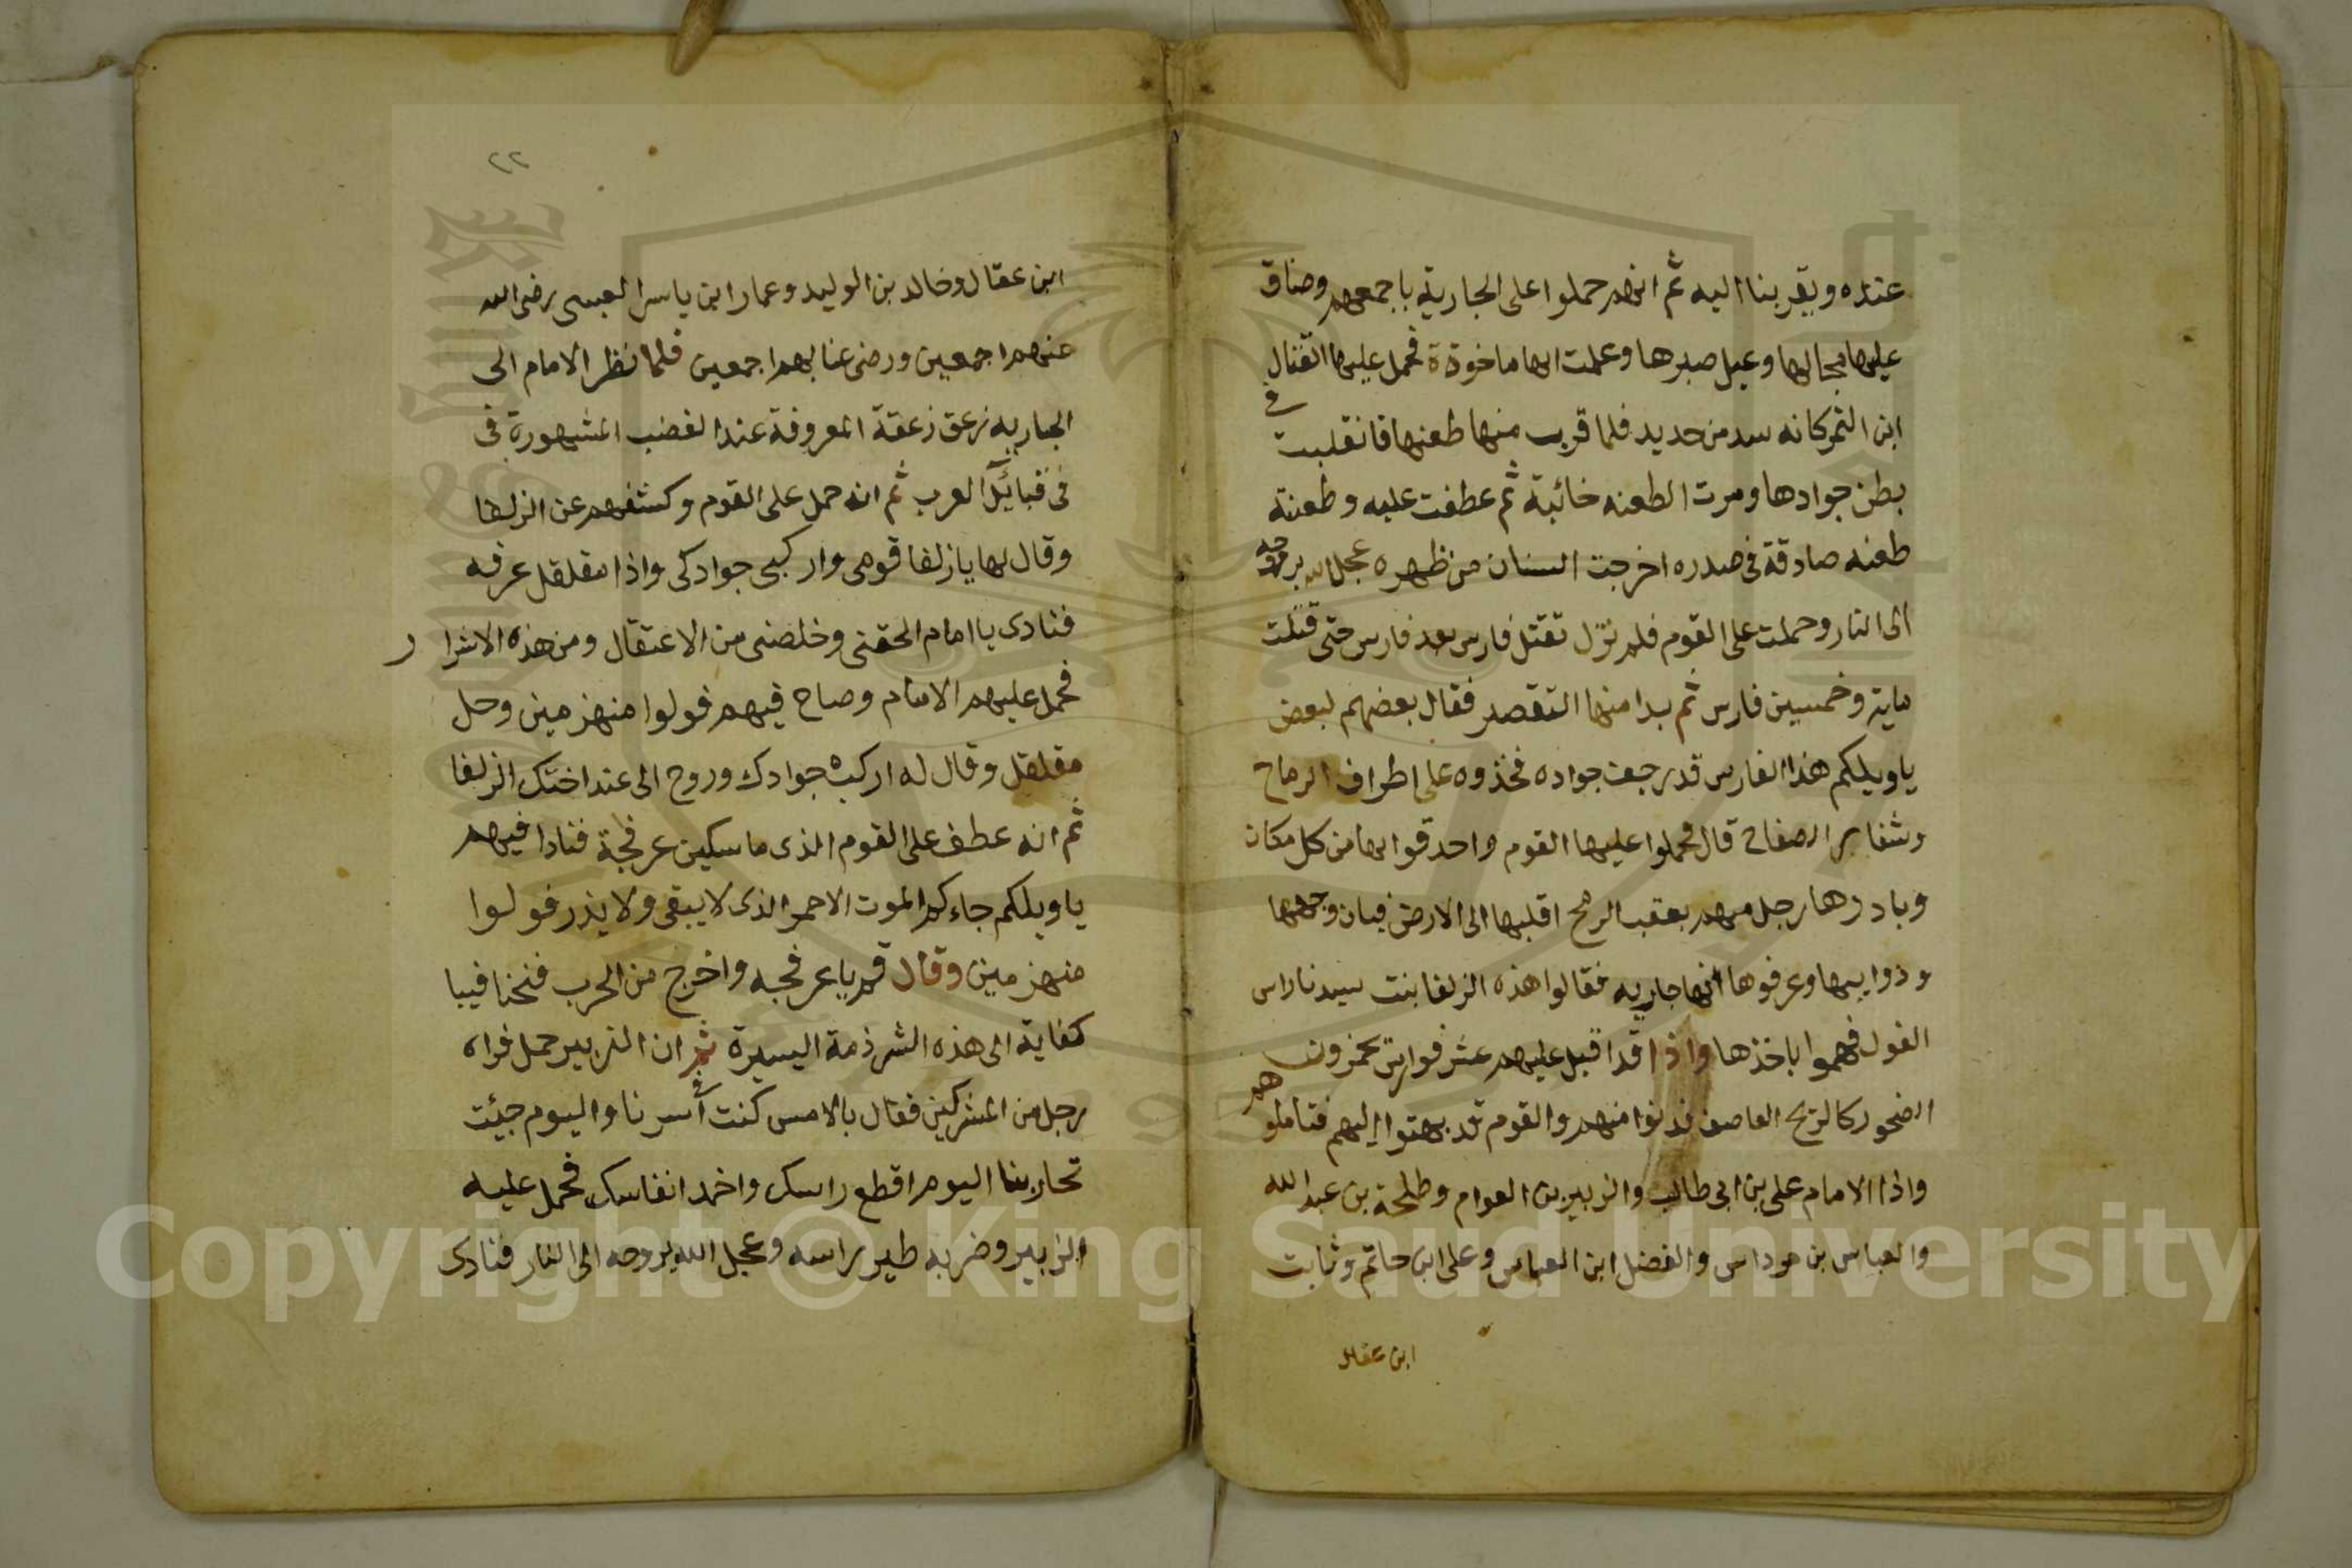 عنده ويقربنا اليه ثم انهم حملوا على الجارية باجمعهم وضاق
عليها مجالها وعيل صبرها وعلمت انها ماخوذة فحمل عليها القتال
ابن النمر كانه سد من حديد فلما قرب منها طعنها فانقلبت في
بطن جوادها ومرت الطعنه خائبة ثم عطفت عليه وطعنته
طعنه صادقة في صدره اخرجت السنان من ظهره عجل الله بروحه
الى النار وحملت على القوم فلم تزل تقتل فارس بعد فارس حتى قتلت
ماية وخمسين فارس ثم بدا منها التقصير فقال بعضهم لبعض
يا ويلكم هذا الفارس قد رجعت جواده فخذوه على اطراف الرماح
وشفار الصفاح قال فحملوا عليها القوم واحدقوا بها من كل مكان
وبادرها رجل منهم بعقب الرمح اقلبها الى الارض فبان وجهها
وذوايبها وعرفوها انها جاريه فقالوا هذه الزلفا بنت سيدنا راس
الغول فهموا باخذها واذا قد اقبل عليهم عشر فوارس يخمزون
الصخور كالريح العاصف فدنوا منهم والقوم قد بهتوا اليهم فتاملوهم
واذا الامام على بن ابى طالب والزبير بن العوام وطلحة بن عبد الله
والعباس بن مرداس والفضل ابن العباس وعلى ابن حاتم وثابت
ابن عقال
٢٢
ابن عقال وخالد بن الوليد وعمار ابن ياسر العبسى رضى الله
عنهم اجمعين ورضى عنا بهم اجمعين فلما نظر الامام الى
الجاريه زعق زعقة المعروفة عند الغضب المشهورة فى
فى قبائل العرب ثم انه حمل على القوم وكشفهم عن الزلفا
وقال لها يا زلفا قومى واركبى جوادكى واذا مقلقل عرفه
فنادى يا امام الحقنى وخلصنى من الاعتقال ومن هذه الاشرار
فحمل عليهم الامام وصاح فيهم فولوا منهزمين وحل
مقلقل وقال له اركب جوادك وروح الى عند اختك الزلفا
ثم انه عطف على القوم الذى ماسكين عرفجة فنادا فيهم
يا ويلكم جاءكم الموت الاحمر الذى لا يبقى ولا يذر فولوا
منهزمين وقال قم يا عرفجه واخرج من الحرب فنحنا فيبا
كفاية الى هذه الشرذمة اليسيرة ثم ان الزبير حمل فراه
رجل من المشركين فقال بالامس كنت فى آسرنا واليوم جيئت
تحاربنا اليوم اقطع راسك واخمد انفاسك فحمل عليه
الزبير وضربه طير راسه وعجل الله بروحه الى النار فنادى
Copyright © King Saud University